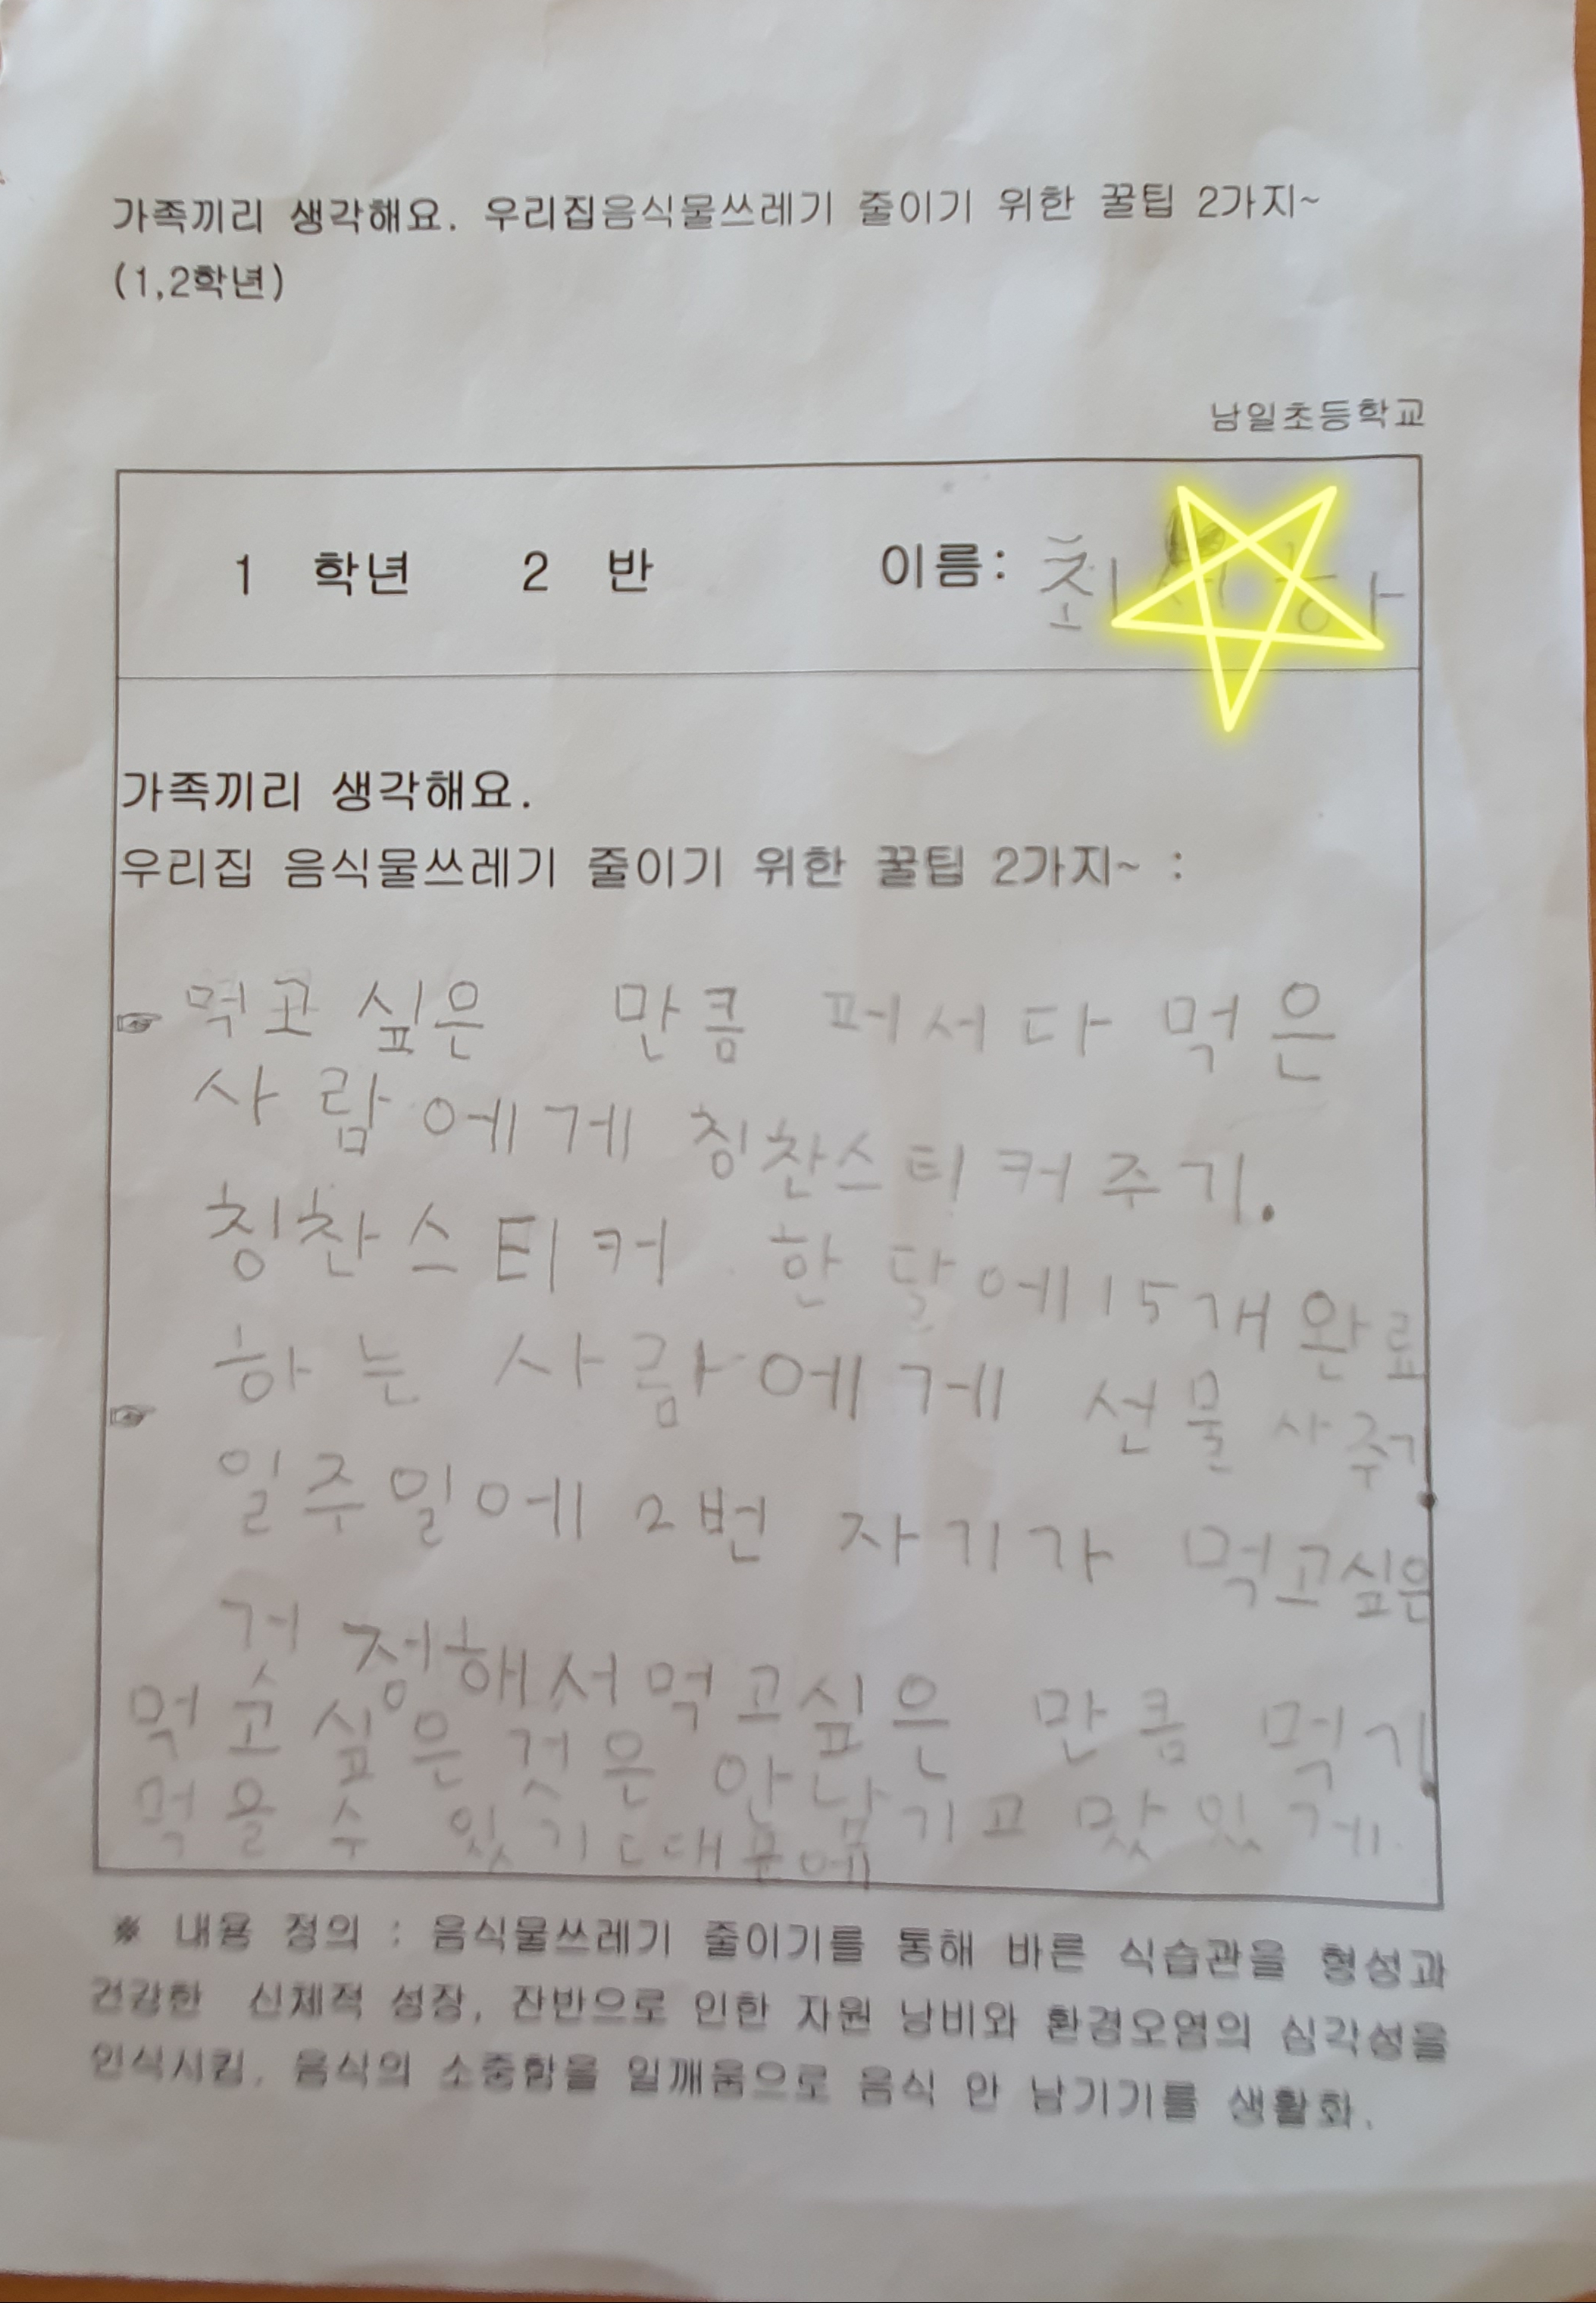 가족끼리 생각해요. 우리집음식물쓰레기 줄이기 위한 꿀팁 2가지~
(1,2학년)
남일초등학교
1 학년 2 반 이름: 최
가족끼리 생각해요.
우리집 음식물쓰레기 줄이기 위한 꿀팁 2가지~ :
☞ 먹고 싶은 만큼 퍼서 다 먹은
사람에게 칭찬스티커 주기.
칭찬스티커 한 달에 15개 완료
하는 사람에게 선물 사주기
☞
일주일에 2번 자기가 먹고싶은
것 정해서 먹고싶은 만큼 먹기.
먹고 싶은 것은 안 남기고 맛있게
먹을 수 있기 때문에
※ 내용 정의 : 음식물쓰레기 줄이기를 통해 바른 식습관을 형성과
건강한 신체적 성장, 잔반으로 인한 자원 낭비와 환경오염의 심각성을
인식시킴. 음식의 소중함을 일깨움으로 음식 안 남기기를 생활화.